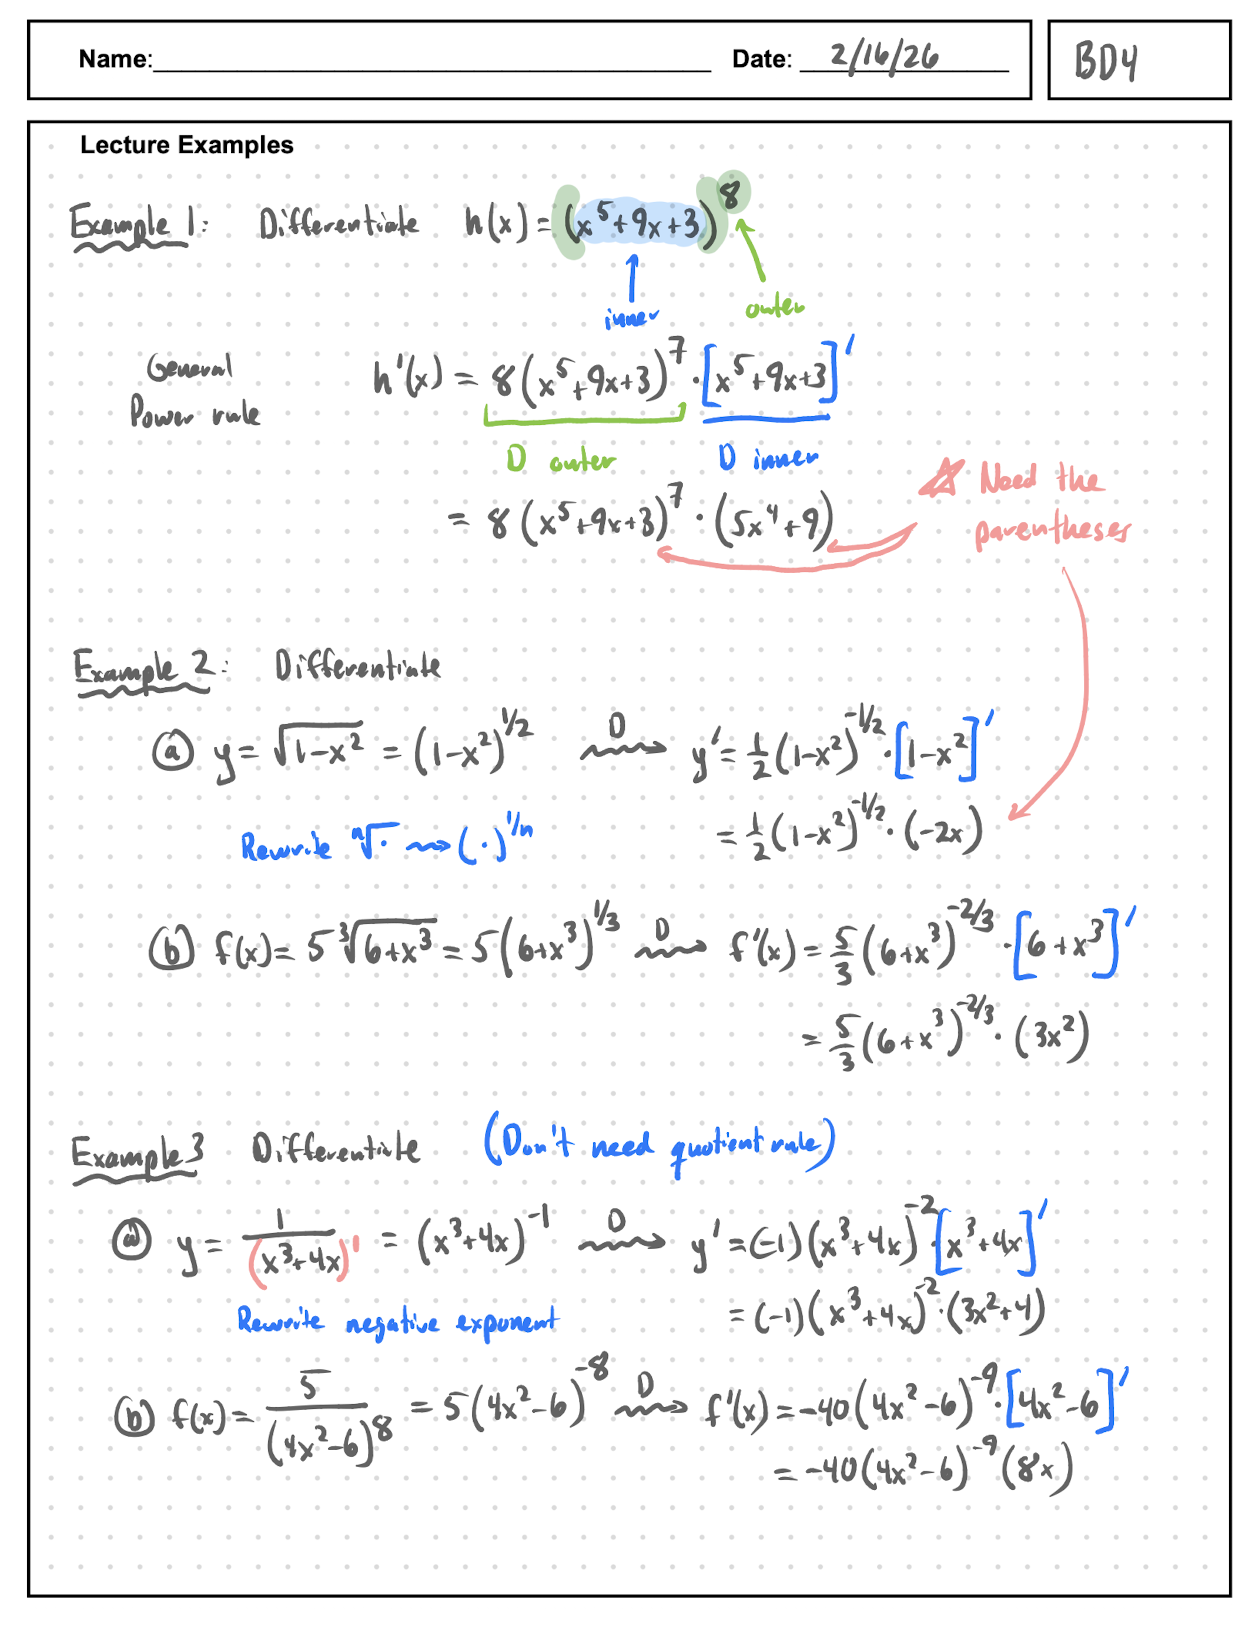 Name: Date: 2/16/26 BD4
Lecture Examples
Example 1: Differentiate h(x) = (x⁵+9x+3)⁸
inner outer
General Power rule h'(x) = 8(x⁵+9x+3)⁷ · [x⁵+9x+3]'
D outer D inner
= 8(x⁵+9x+3)⁷ · (5x⁴+9)
☆ Need the
parentheses
Example 2: Differentiate
(a) y = √(1-x²) = (1-x²)^(1/2) D⟿ y' = 1/2 (1-x²)^(-1/2) · [1-x²]'
Rewrite ⁿ√· ⟿ (·)^(1/n) = 1/2 (1-x²)^(-1/2) · (-2x)
(b) f(x) = 5 ³√(6+x³) = 5(6+x³)^(1/3) D⟿ f'(x) = 5/3 (6+x³)^(-2/3) · [6+x³]'
= 5/3 (6+x³)^(-2/3) · (3x²)
Example 3 Differentiate (Don't need quotient rule)
(a) y = 1/(x³+4x)¹ = (x³+4x)⁻¹ D⟿ y' = (-1)(x³+4x)⁻² · [x³+4x]'
Rewrite negative exponent = (-1)(x³+4x)⁻² · (3x²+4)
(b) f(x) = 5/(4x²-6)⁸ = 5(4x²-6)⁻⁸ D⟿ f'(x) = -40(4x²-6)⁻⁹ · [4x²-6]'
= -40(4x²-6)⁻⁹ (8x)